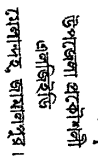 উপজেলা প্রকৌশলী
এলজিইডি
মেলান্দহ, জামালপুর।